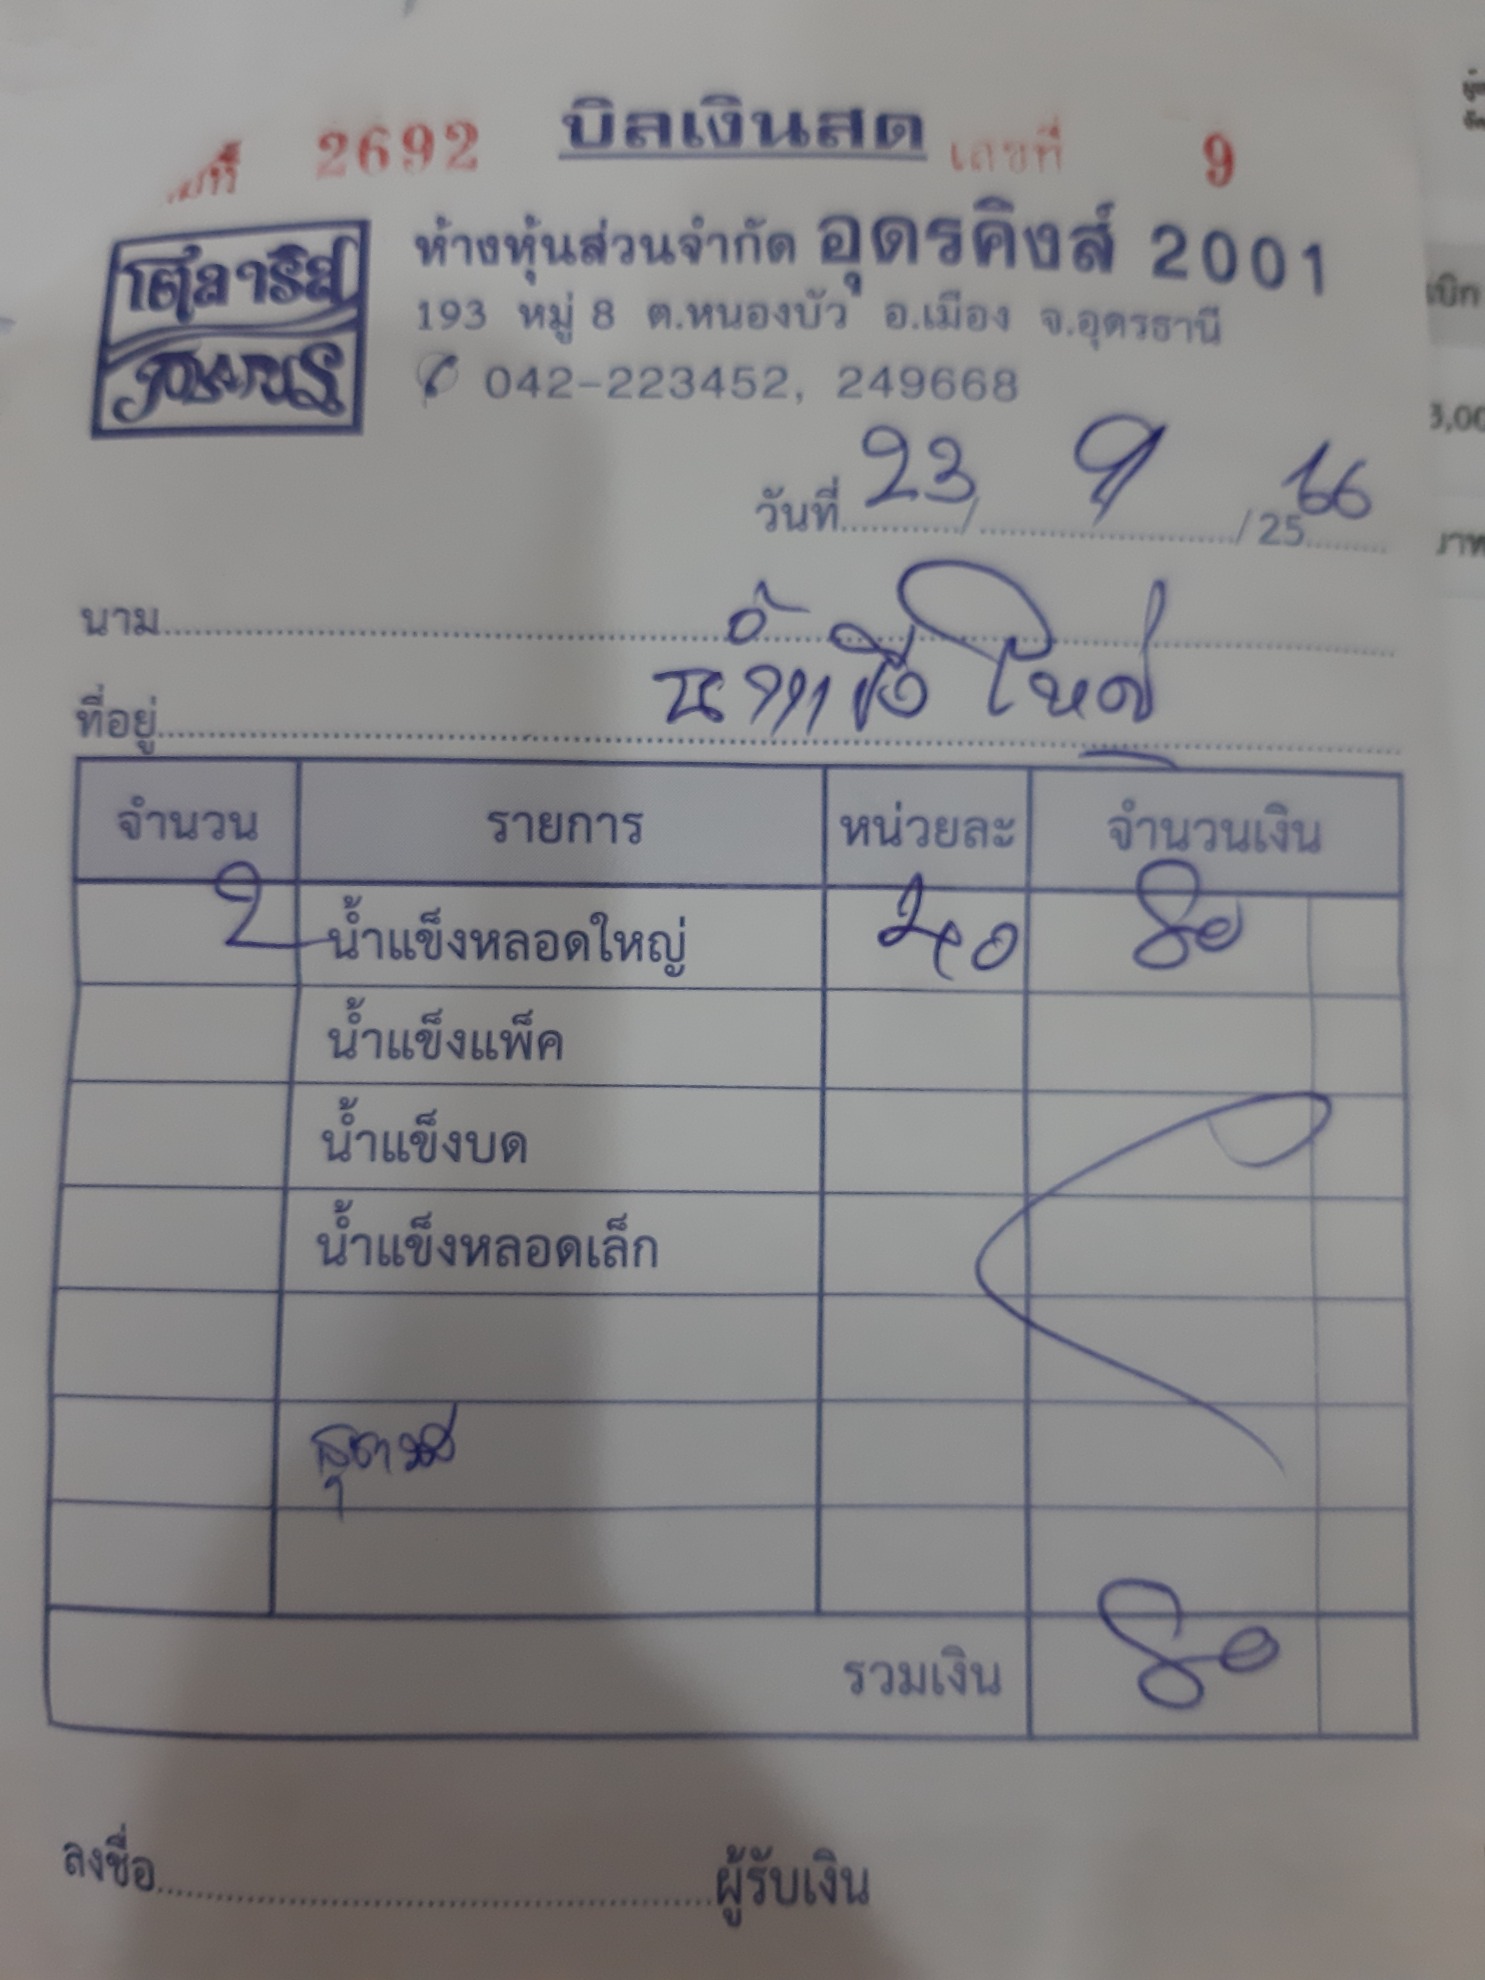 2692 บิลเงินสด เลขที่ 9
ห้างหุ้นส่วนจำกัด อุดรคิงส์ 2001
193 หมู่ 8 ต.หนองบัว อ.เมือง จ.อุดรธานี
042-223452, 249668
วันที่ 23 / 9 / 2566
นาม
ที่อยู่
จำนวน รายการ หน่วยละ จำนวนเงิน
2 น้ำแข็งหลอดใหญ่ 40 80
น้ำแข็งแพ็ค
น้ำแข็งบด
น้ำแข็งหลอดเล็ก
รวมเงิน 80
ลงชื่อ ผู้รับเงิน